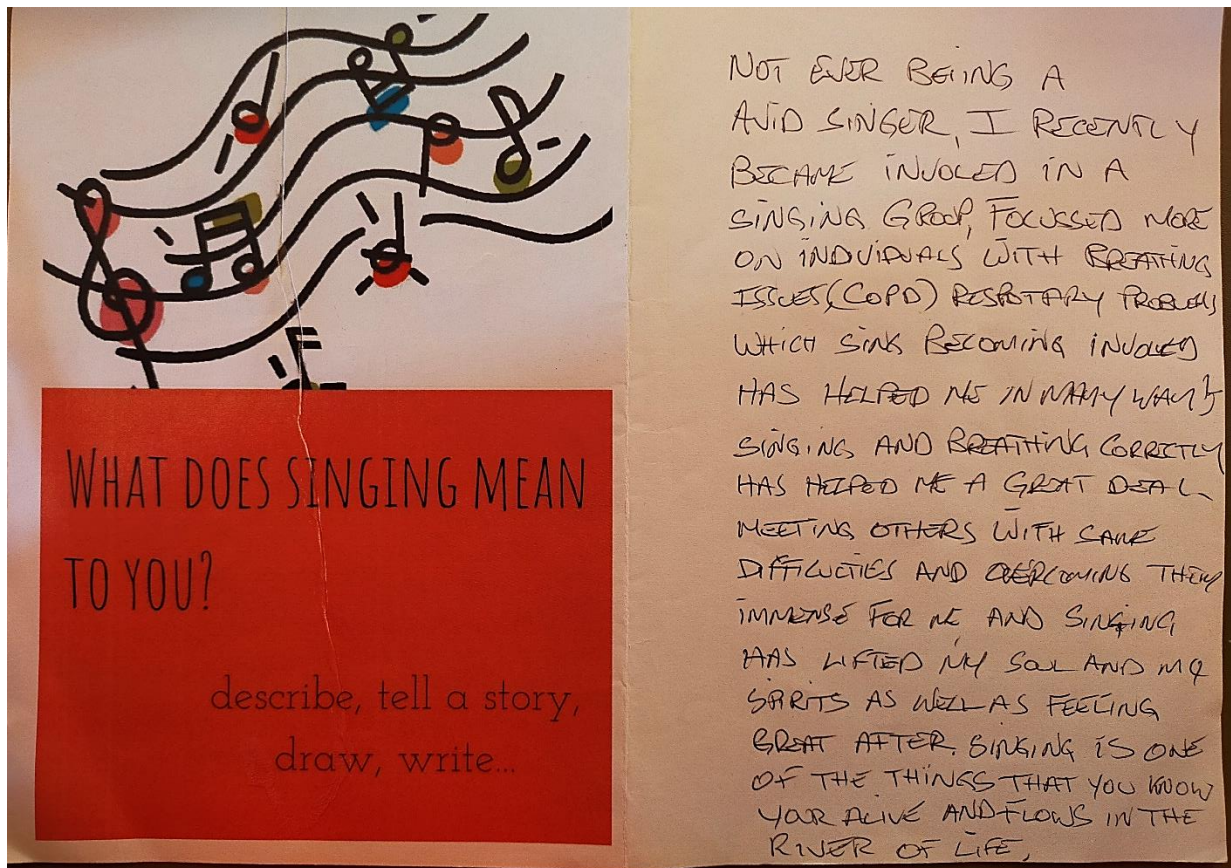 WHAT DOES SINGING MEAN
TO YOU?
describe, tell a story,
draw, write...
NOT EVER BEIING A
AVID SINGER, I RECENTLY
BECAME INVOLED IN A
SINGING GROUP, FOCUSSED MORE
ON INDIVIDUALS WITH BREATHING
ISSUES, (COPD) RESPOTARY PROBLEMS
WHICH SINS BECOMING INVOLED
HAS HELPED ME IN MANY WAYS
SINGING AND BREATHING CORRECTLY
HAS HELPED ME A GREAT DEAL
MEETING OTHERS WITH SAME
DIFFICULTIES AND OVERCOMING THEM
IMMENSE FOR ME AND SINGING
HAS LIFTED MY SOUL AND MY
SPIRITS AS WELL AS FEELING
GREAT AFTER. SINGING IS ONE
OF THE THINGS THAT YOU KNOW
YOUR ALIVE AND FLOWS IN THE
RIVER OF LIFE,